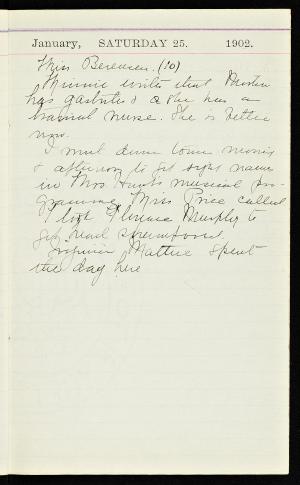 January, SATURDAY 25. 1902.
Miss Berenson. (10)
Minnie writes that
has gastritis & she has a
trained nurse. She is better
now.
I went down town morning
& afternoon to get right names
in Mrs musical pro-
gramme. Miss Price called
I took Florence Murphy to
get head shampooed.
Mattie spent
the day here